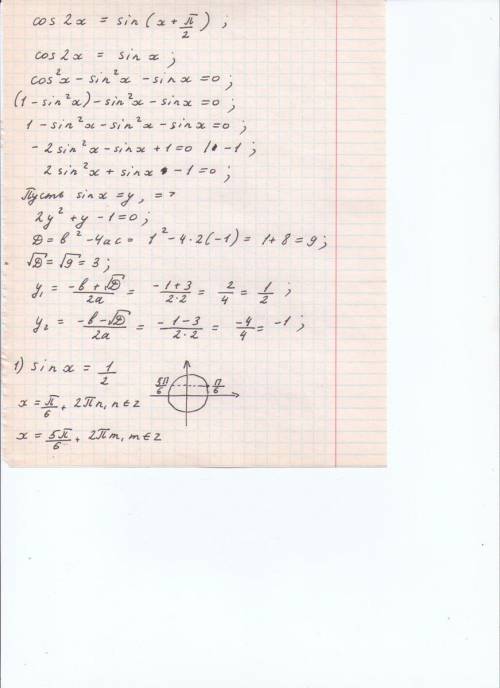 cos 2x = sin (x + π/2) ;
cos 2x = sin x ;
cos²x - sin²x - sin x = 0 ;
(1 - sin²x) - sin²x - sin x = 0 ;
1 - sin²x - sin²x - sin x = 0 ;
- 2 sin²x - sin x + 1 = 0 | · -1 ;
2 sin²x + sin x - 1 = 0 ;
Пусть sin x = y, =>
2y² + y - 1 = 0 ;
D = в² - 4ac = 1² - 4·2(-1) = 1 + 8 = 9 ;
√D = √9 = 3 ;
y₁ = (-в + √D)/2a = (-1 + 3)/2·2 = 2/4 = 1/2 ;
y₂ = (-в - √D)/2a = (-1 - 3)/2·2 = -4/4 = -1 ;
1) sin x = 1/2
5π/6 π/6
x = π/6 + 2πn, n ∈ z
x = 5π/6 + 2πm, m ∈ z